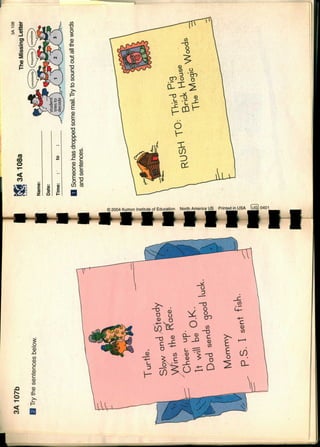 3A 107b
2 Try the sentences below.
Turtle.
Slow and Steady
Wins the Race.
Cheer up.
It will be O.K.
Dad sends good luck.
Mommy
P.S. I sent fish.
3A 108a
3A 108
The Missing Letter
Name:
Date:
Time: : to :
1 Someone has dropped some mail. Try to sound out all the words
and sentences.
RUSH TO: Third Pig
Brick House
The Magic Woods
© 2004 Kumon Institute of Education North America US Printed in USA US 0401